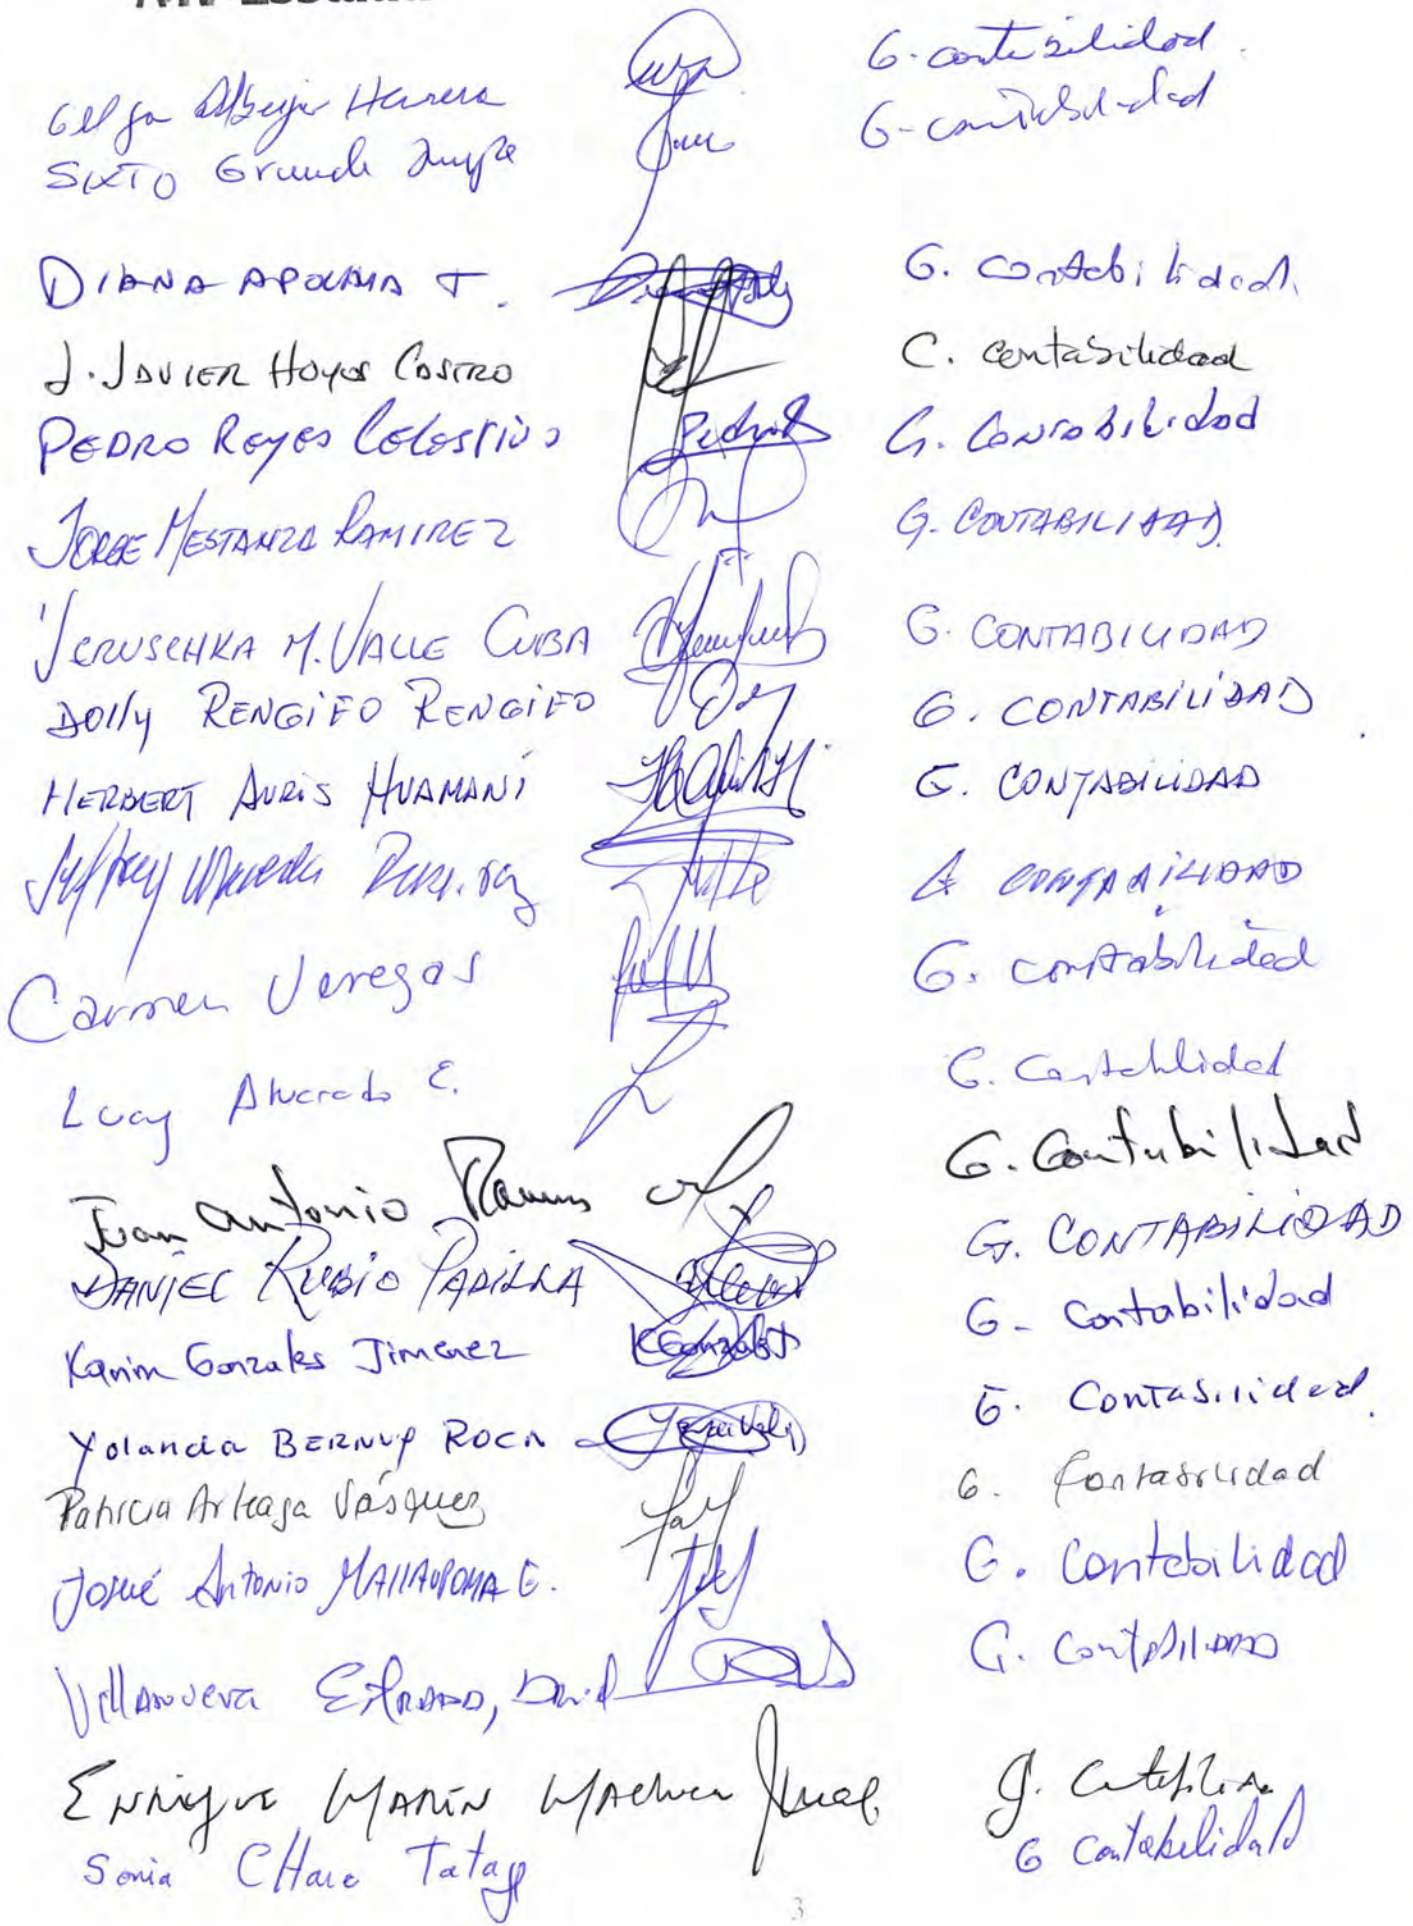 Herrera G. contabilidad
SIXTO Grande G-contabilidad
DIANA APOLAYA T. G. Contabilidad.
J. JAVIER HOYOS CASTRO C. contabilidad
PEDRO Reyes Celestino G. Contabilidad
JORGE MESTANZA RAMIREZ G. CONTABILIDAD
JERUSCHKA M. VALLE CUBA G. CONTABILIDAD
DOlly RENGIFO RENGIFO G. CONTABILIDAD
HERBERT AURIS HUAMANÍ G. CONTABILIDAD
Jeffrey CONTABILIDAD
Carmen Venegas G. Contabilidad
Lucy Alvarado E. G. Contabilidad
Juan Antonio Ramos G. Contabilidad
DANIEL RUBIO PADILLA G. CONTABILIDAD
Karim Gonzales Jimenez KGonzalesJ G- Contabilidad
Yolanda BERNUY ROCA G. Contabilidad.
Patricia Arteaga Vásquez G. Contabilidad
JOSUÉ Antonio MALLAUPOMA E. G. Contabilidad
Villanueva Estrada, David G. Contabilidad
ENRIQUE MARÍN MACHUCA
Sonia G Contabilidad
3